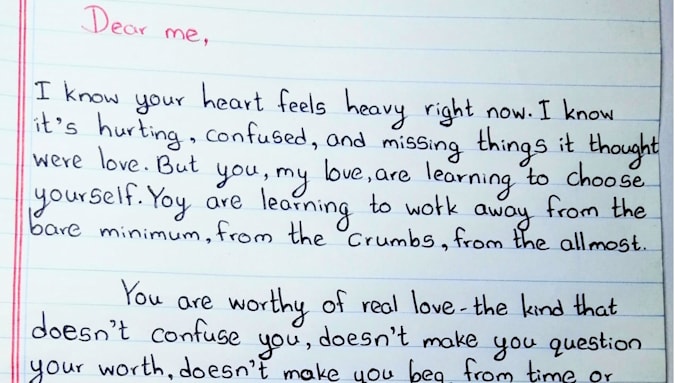 Dear me,
I know your heart feels heavy right now. I know
it's hurting, confused, and missing things it thought
were love. But you, my love, are learning to choose
yourself. Yoy are learning to wotk away from the
bare minimum, from the crumbs, from the allmost.
You are worthy of real love - the kind that
doesn't confuse you, doesn't make you question
your worth, doesn't make you beg from time or